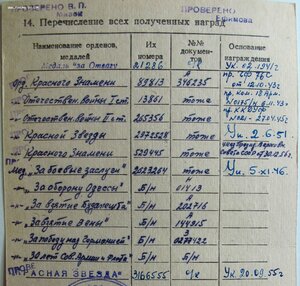 ПРОВЕРЕНО В.П.
ПРОВЕРЕНО
Ефимова
14. Перечисление всех полученных наград
Наименование орденов, медалей
Их номера
№№ документов
Основание награждения
Медаль "За Отвагу"
Орд. Красного Знамени 89813 А 346235
Отечествен. войны I ст. 13861 тоже
Отечествен. войны II ст. 265356 тоже
Красной Звезды 2972528 тоже Ук. 2.6.51
Красного Знамени 529445 тоже
Мед. "За боевые заслуги" 2023264 тоже Ук. 5.XI.46.
"За оборону Одессы" Б/н 01419
"За взятие Будапешта" Б/н 202716
"За взятие Вены" Б/н 144915
"За победу над Германией" Б/н 0277422
"30 лет Сов. Армии и Флота" Б/н Б/н
КРАСНАЯ ЗВЕЗДА" 3166555 о/к Ук. 20.09.55 г.